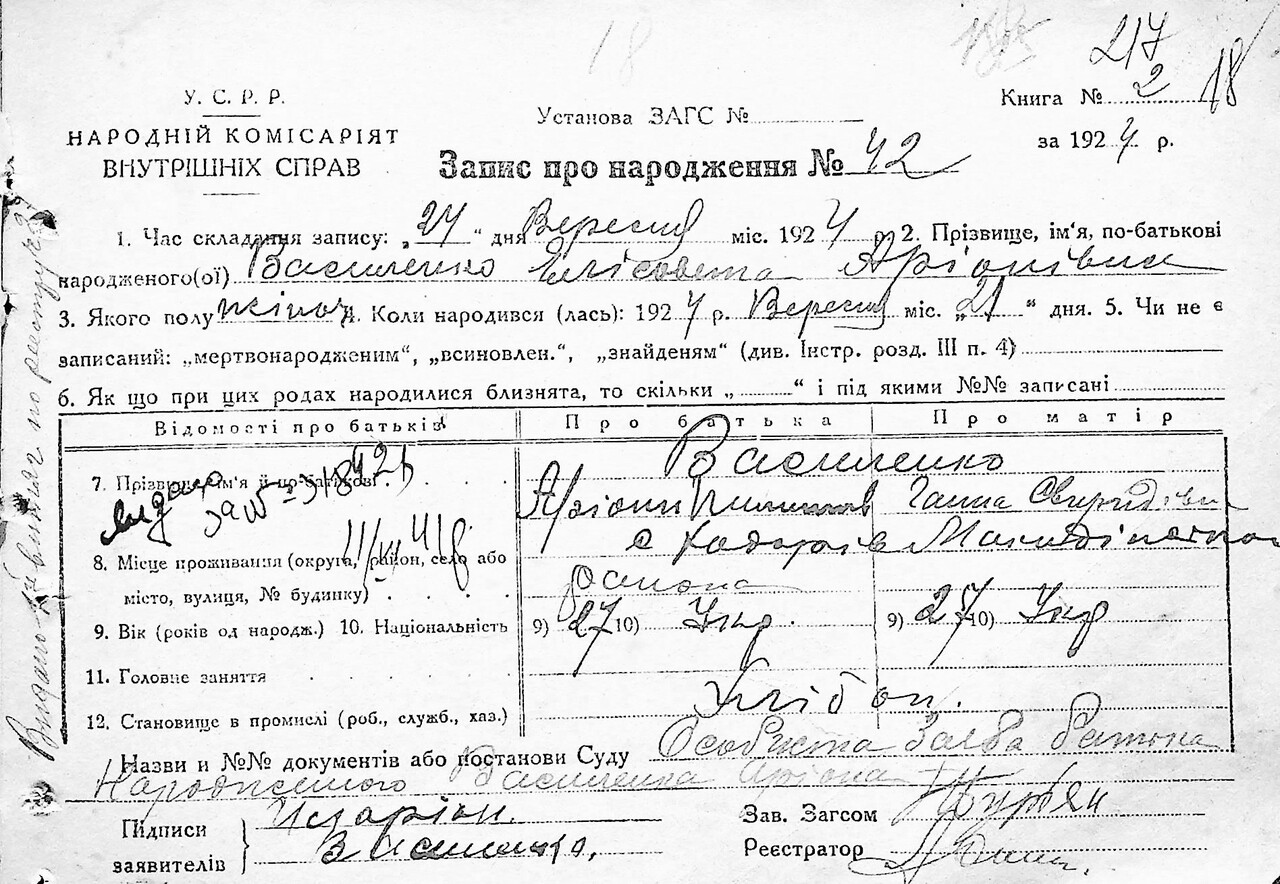 217
У. С. Р. Р.
НАРОДНІЙ КОМІСАРІЯТ
ВНУТРІШНІХ СПРАВ
Установа ЗАГС №
Книга № 2 18
за 1924 р.
Запис про народження № 42
1. Час складання запису: „24“ дня Вересня міс. 1924 р. 2. Прізвище, ім'я, по-батькові
народженого(ої) Василенко Елісовета Аріонівна
3. Якого полу жіноч 4. Коли народився (лась): 1924 р. Вересня міс. „21“ дня. 5. Чи не є
записаний: „мертвонародженим“, „всиновлен.“, „знайденям“ (див. Інстр. розд. III п. 4)
6. Як що при цих родах народилися близнята, то скільки „ “ і під якими №№ записані
Відомості про батьків Про батька Про матір
7. Прізвище, ім'я й по-батькові Василенко
Аріон Ганна Свиридівн
8. Місце проживання (округа, район, село або с Ходорів
місто, вулиця, № будинку) району
9. Вік (років од народж.) 10. Національність 9) 27 10) Укр. 9) 27 10) Укр
11. Головне заняття
Хлібор.
12. Становище в промислі (роб., служб., хаз.)
Назви и №№ документів або постанови Суду Особиста Заява батька
Народженого Василенка Аріона
Підписи заявителів Іларіон Василенко.
Зав. Загсом
Реєстратор